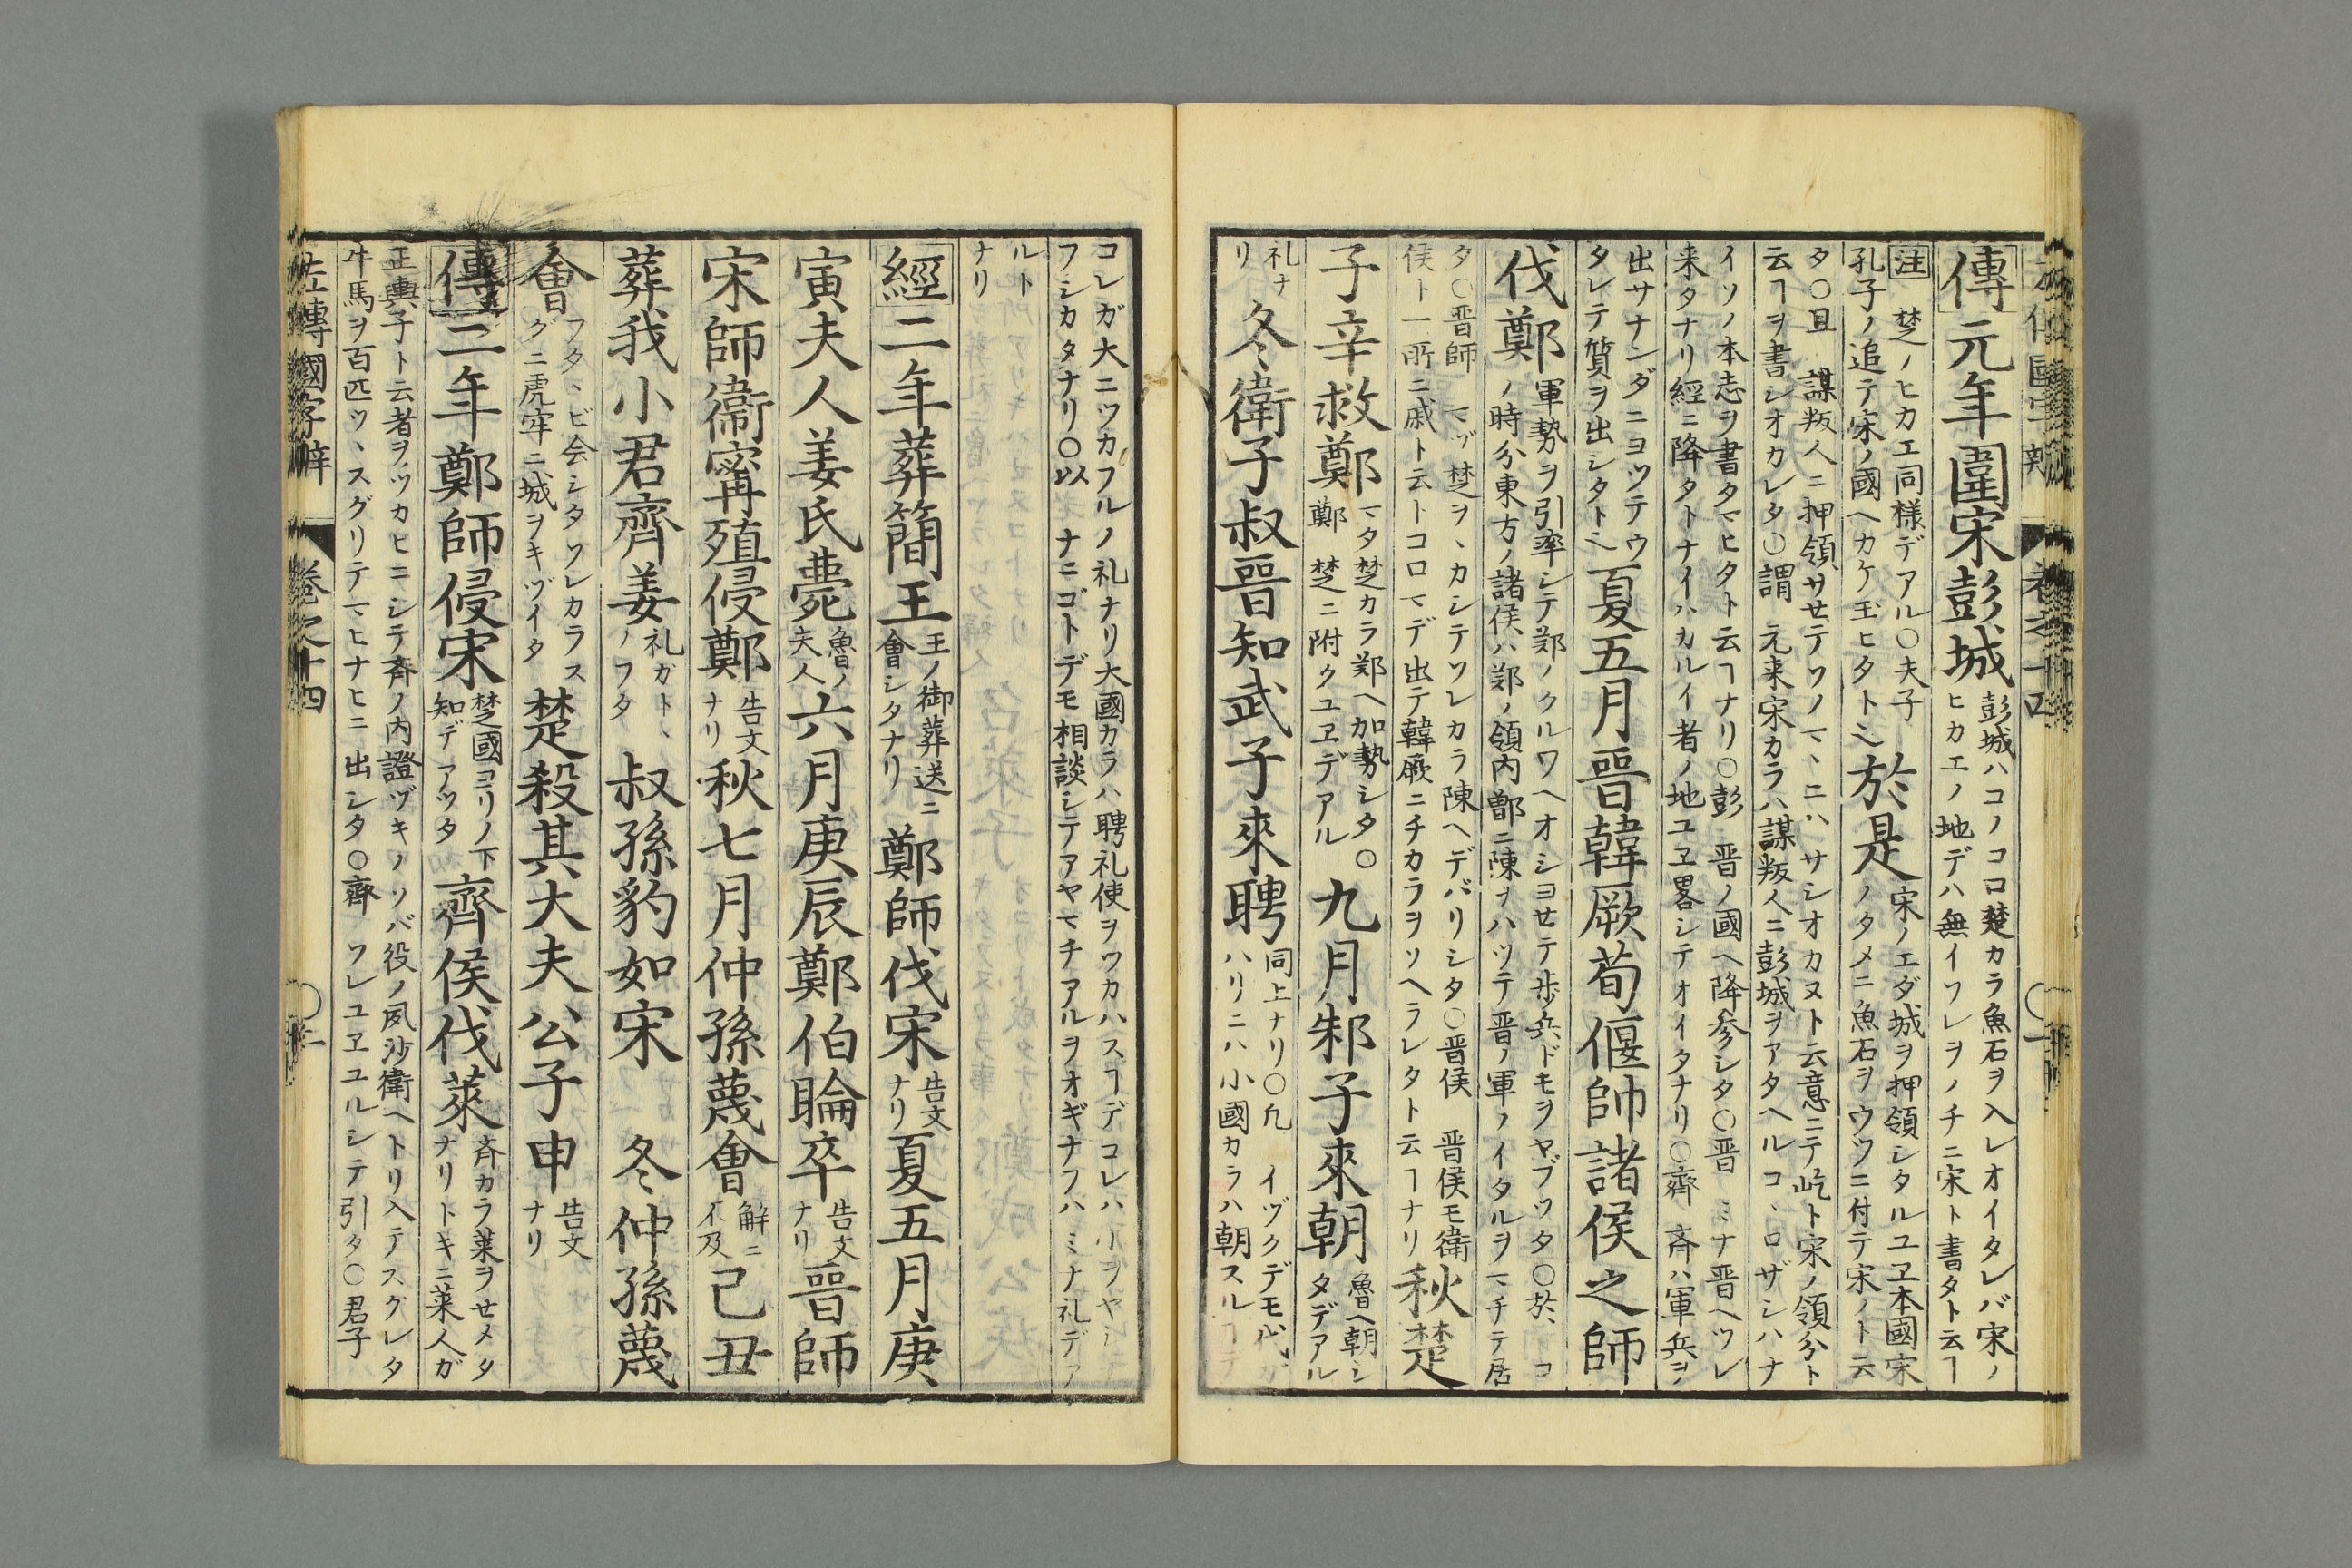 傳元年圍宋彭城彭城ハコノコロ楚カラ魚石ヲ入レオイタレバ宋ノ
ヒカエノ地デハ無イワレヲノチニ宋ト書タト云ヿ
注 楚ノヒカエ同様デアル〇夫子
孔子ノ追テ宋ノ國ヘカケ玉ヒタト乄於是宋ノエダ城ヲ押領シタルユヱ本國宋
ノタメニ魚石ヲウツニ付テ宋ノト云
タ〇且 謀叛人ニ押領サセテソノマヽニハサシオカヌト云意ニテ屹ト宋ノ領分ト
云ヿヲ書シオカレタ〇謂 元来宋カラハ謀叛人ニ彭城ヲアタヘルコヽロザシハナ
イソノ本志ヲ書タマヒタト云ヿナリ〇彭 晋ノ國ヘ降参シタ〇晋 ミナ晋ヘツレ
来タナリ經ニ降タトナイハカルイ者ノ地ユヱ畧シテオイタナリ〇齊 斉ハ軍兵ヲ
出サナンダニヨツテウ
タレテ質ヲ出シタト乄夏五月晉韓厥荀偃帥諸侯之師
伐鄭軍勢ヲ引率シテ鄭ノクルワヘオシヨセテ歩兵ドモヲヤブツタ〇於 コ
ノ時分東方ノ諸侯ハ鄭ノ領内鄫ニ陳ヲハツテ晋ノ軍ノイタルヲマチテ居
タ〇晋師 マヅ楚ヲヽカシテソレカラ陳ヘデバリシタ〇晋侯 晋侯モ衛
侯ト一所ニ戚ト云トコロマデ出テ韓厥ニチカラヲソヘラレタト云ヿナリ秋楚
子辛救鄭マタ楚カラ鄭ヘ加勢シタ〇
鄭 楚ニ附クユヱデアル九月邾子來朝魯ヘ朝シ
タデアル
礼ナ
リ冬衛子叔晉知武子來聘同上ナリ〇凡 イヅクデモ代
ハリニハ小國カラハ朝スル
コレガ大ニツカフルノ礼ナリ大國カラハ聘礼使ヲツカハスヿデコレハ小ヲヤシ
フシカタナリ〇以 ナニゴトデモ相談シテアヤマチアルヲオギナフハミナ礼デア
ルト
ナリ
經二年葬簡王王ノ御葬送ニ
會シタナリ鄭師伐宋告文
ナリ夏五月庚
寅夫人姜氏薨魯ノ
夫人六月庚辰鄭伯睔卒告文
ナリ晉師
宋師衞甯殖侵鄭告文
ナリ秋七月仲孫蔑會解ニ
不及己丑
葬我小君齊姜礼ガトヽ
ノフタ叔孫豹如宋 冬仲孫蔑
會フタヽビ会シタソレカラス
グニ虎牢ニ城ヲキヅイタ楚殺其大夫公子申告文
ナリ
傳二年鄭師侵宋楚國ヨリノ下
知デアツタ齊侯伐萊斉カラ莱ヲせメタ
ナリトキニ莱人ガ
正輿子ト云者ヲツカヒニシテ斉ノ内證ヅキノソバ役ノ夙沙衛ヘトリ入テスグレタ
牛馬ヲ百匹ツヽスグリテマヒナヒニ出シタ〇齊 ソレユヱユルシテ引タ〇君子
左傳國字辯 卷之十四